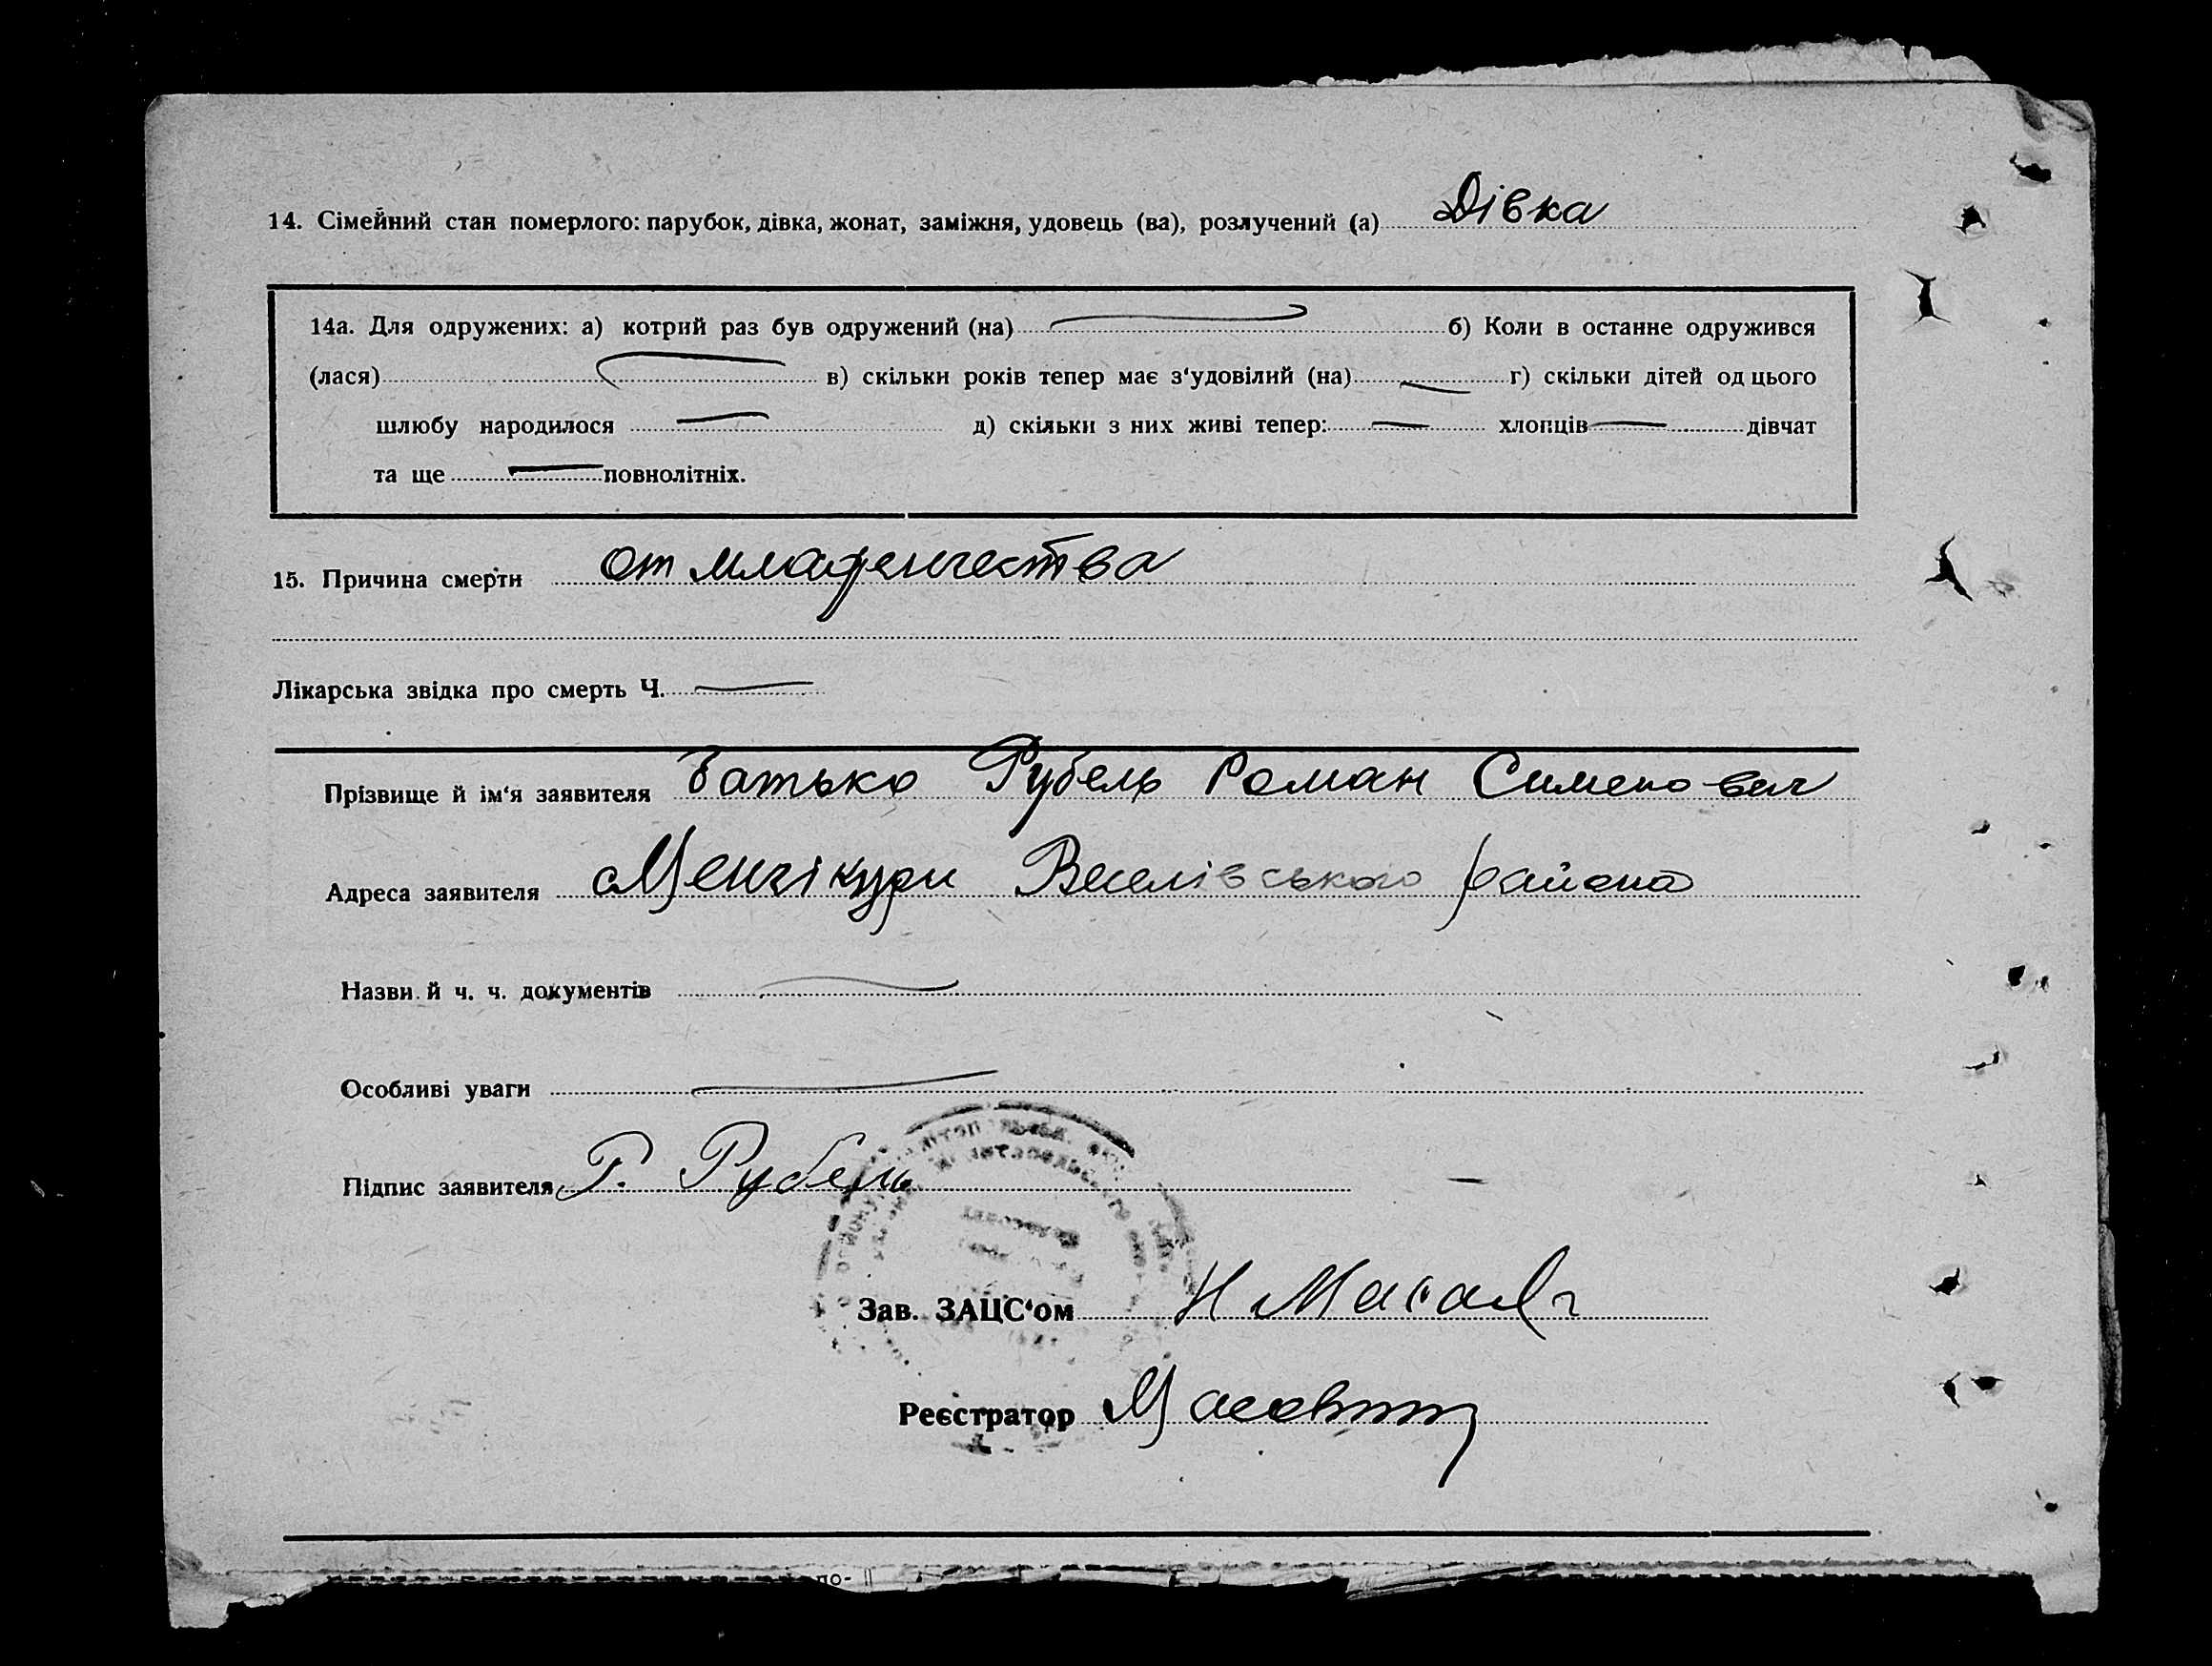 14. Сімейний стан померлого: парубок, дівка, жонат, заміжня, удовець (ва), розлучений (а) Дівка
14а. Для одружених: а) котрий раз був одружений (на) б) Коли в останне одружився
(лася) в) скільки років тепер має з‘удовілий (на) г) скільки дітей од цього
шлюбу народилося д) скільки з них живі тепер: — хлопців — дівчат
та ще — повнолітніх.
15. Причина смерти от младенчества
Лікарська звідка про смерть Ч. —
Прізвище й ім‘я заявителя батько Рубель Роман Сименович
Адреса заявителя Менчікури Веселівського района
Назви й ч. ч. документів
Особливі уваги
Підпис заявителя Р. Рубель
Зав. ЗАЦС‘ом Н
Реєстратор
по-